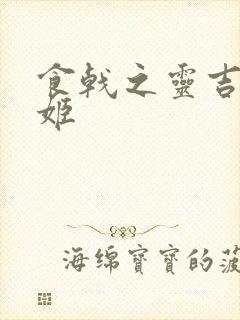 食戟之靈吉
姬
海绵寶寶的菠